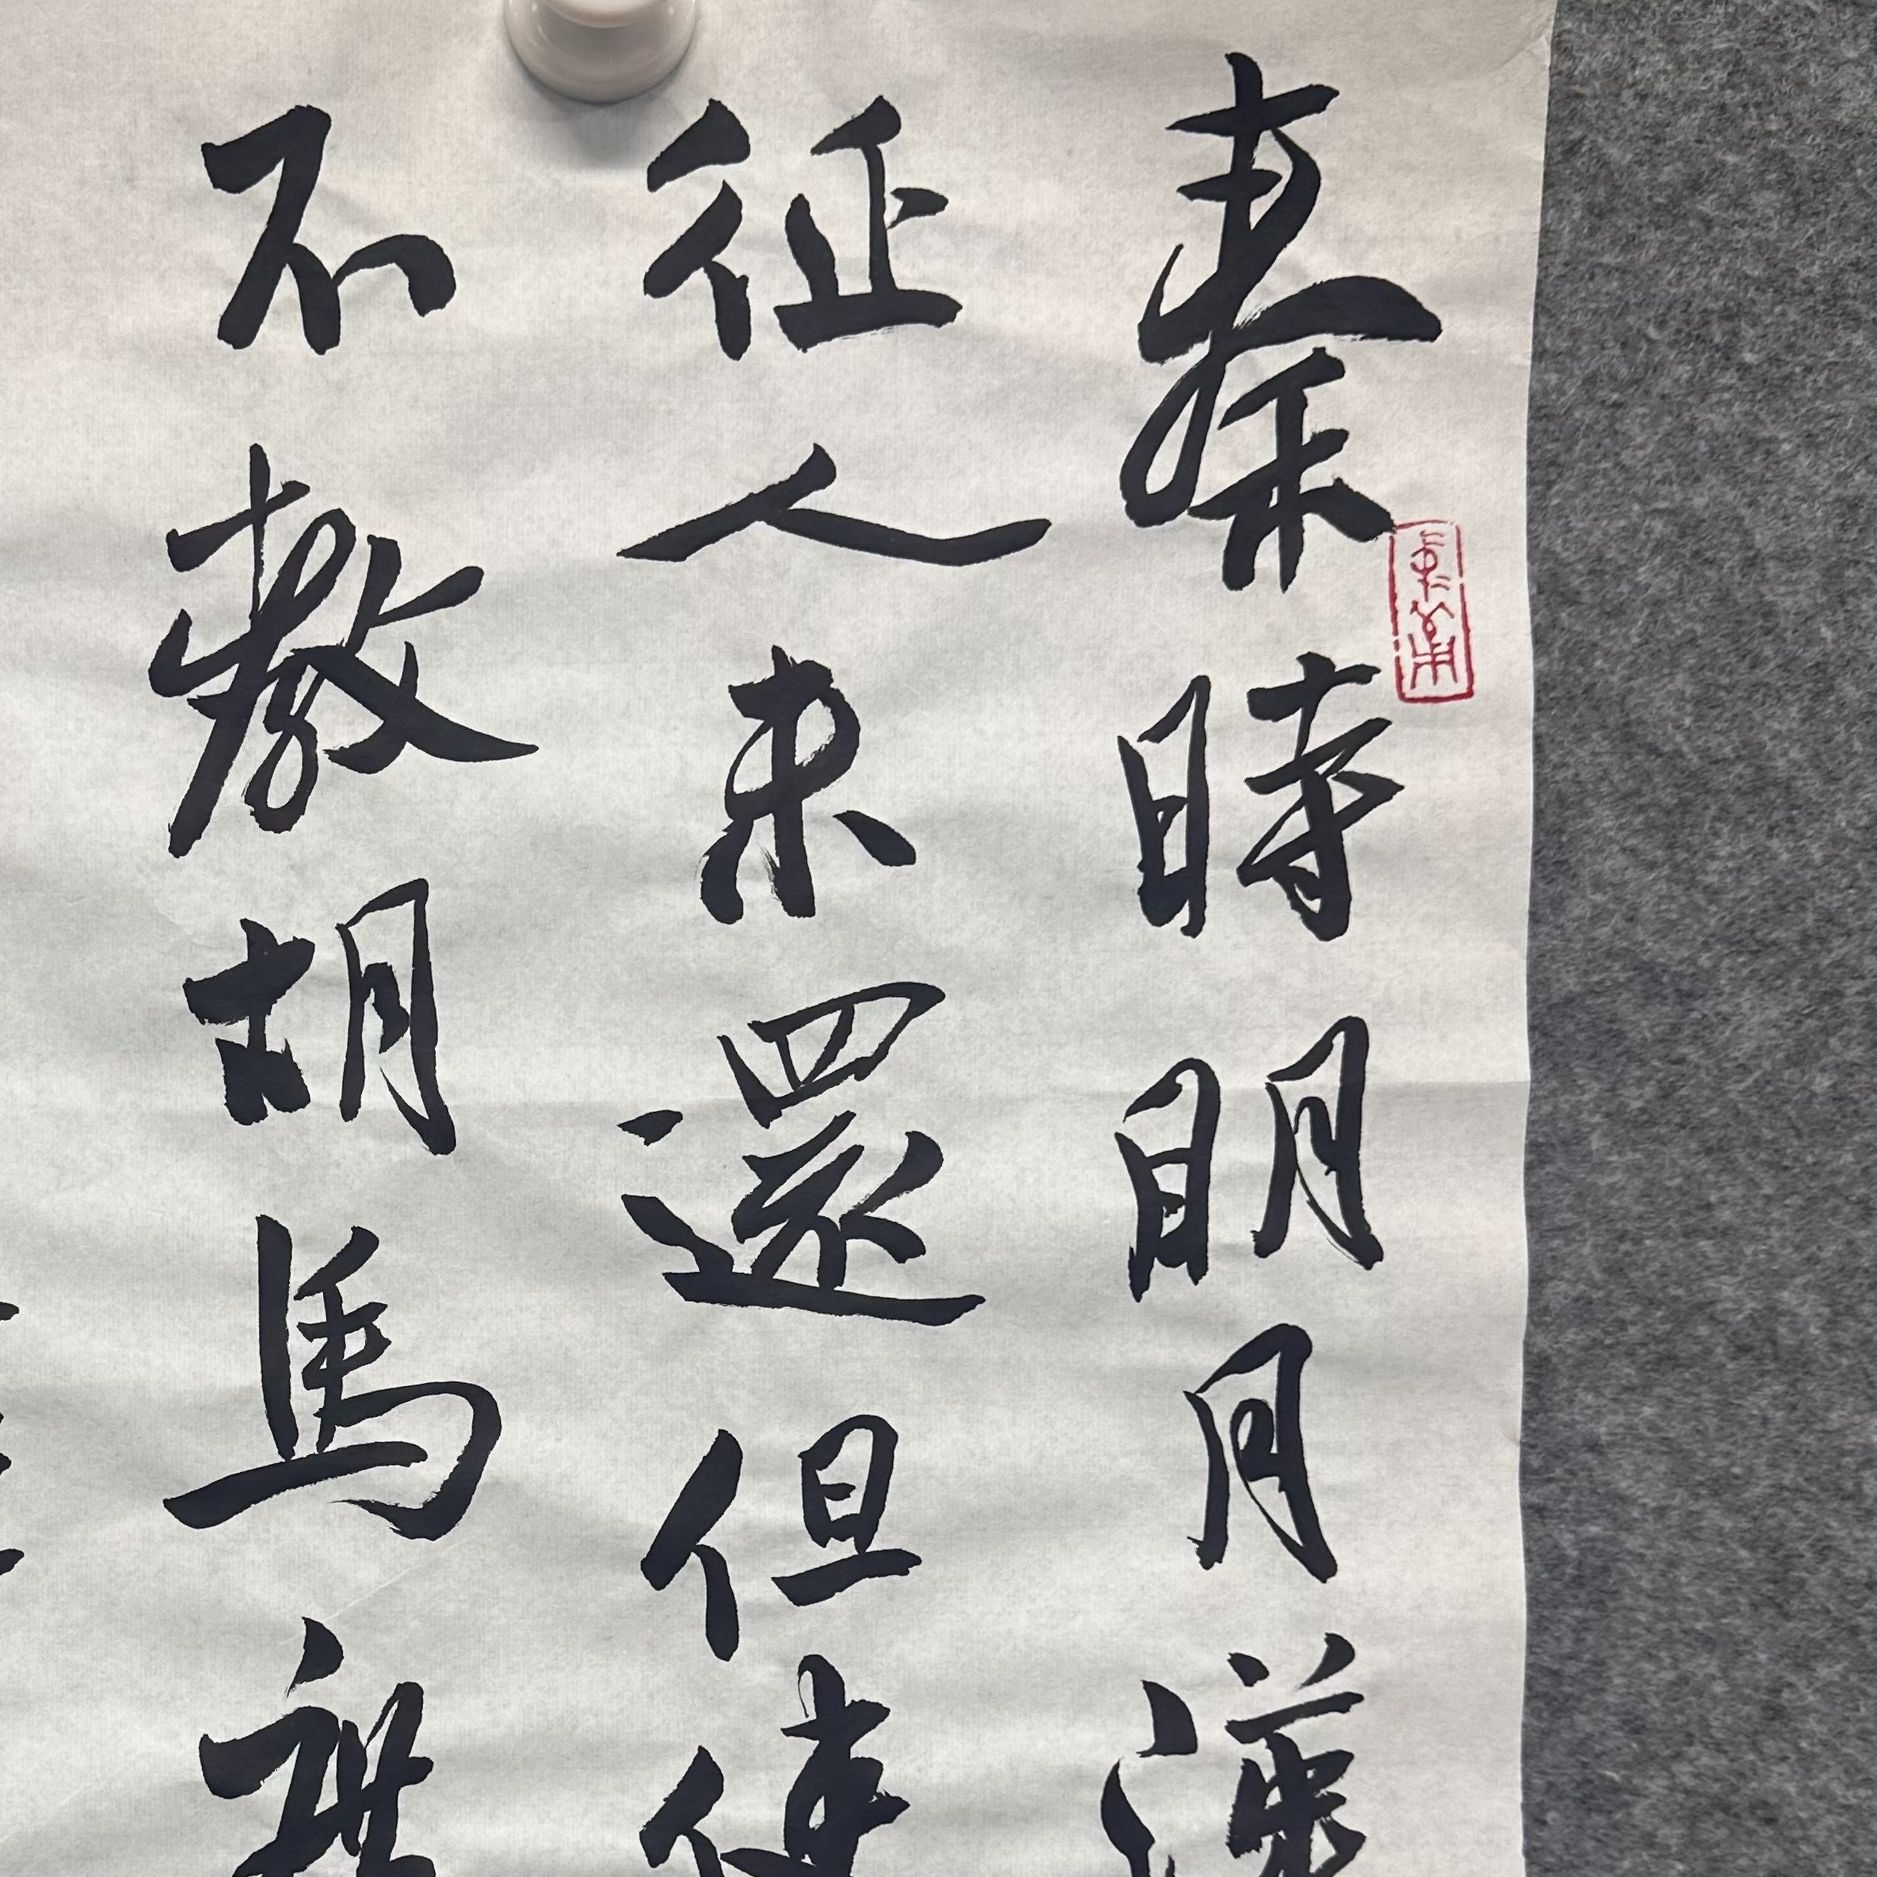 秦時明月漢
征人未還但使
不教胡馬度